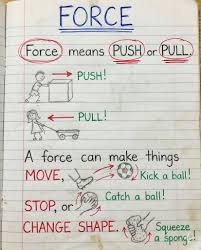 FORCE
Force means PUSH or PULL.
PUSH!
PULL!
A force can make things
MOVE, Kick a ball!
STOP, or Catch a ball!
CHANGE SHAPE. Squeeze
a sponge!